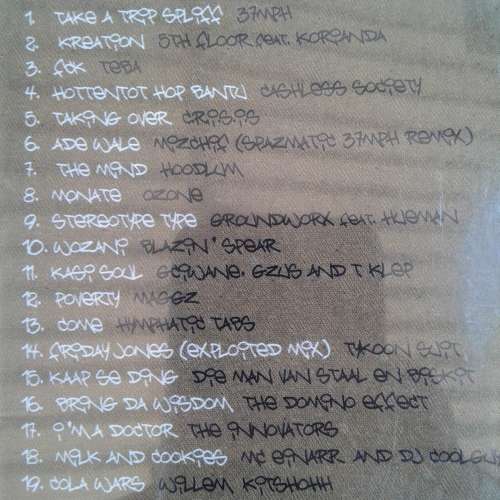 1. TAKE A TRIP SPLIFF 37MPH
2. KREATION 5TH FLOOR FEAT. KORIANDA
3. FCK TEBA
4. HOTTENTOT HOP BANTU CASHLESS SOCIETY
5. TAKING OVER C.R.I.S.I.S
6. ADE WALE MIZCHIF (SPAZMATIC 37MPH REMIX)
7. THE MIND HOODLUM
8. MONATE OZONE
9. STEREOTYPE TYPE GROUNDWORX FEAT. HUEMAN
10. WOZANI BLAZIN' SPEAR
11. KASI SOUL GCIWANE. GZUS AND T KLEP
12. POVERTY MAGGZ
13. COME HYMPHATIC TABS
14. FRIDAY JONES (EXPLOITED MIX) TYKOON SUIT
15. KAAP SE DING DIE MAN VAN STAAL EN BISKIT
16. BRING DA WISDOM THE DOMINO EFFECT
17. I'M A DOCTOR THE INNOVATORS
18. MILK AND COOKIES MC EINARR AND DJ COOLGUY
19. COLA WARS WILLEM KITSHOHH